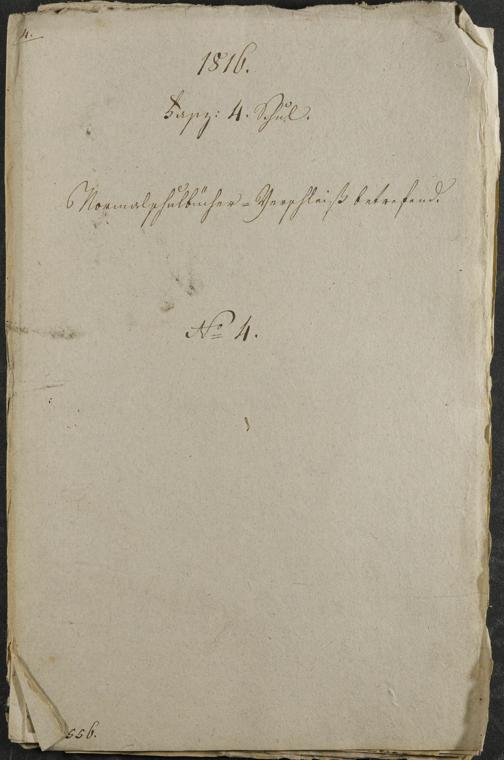 4.
1816.
Fasz: 4. Schul.
Normalschulbücher-Verschleiß betrefend.
No 4.
556.